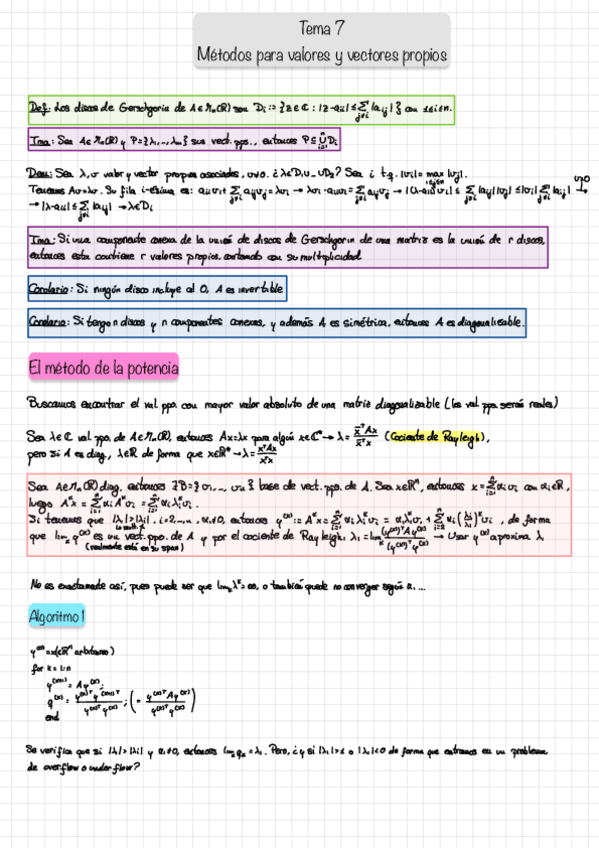 Tema 7
Métodos para valores y vectores propios
Def: Los discos de Gerschgorin de A∈M_n(ℝ) son D_i := {z∈ℂ : |z-a_ii| ≤ Σ_{j≠i} |a_ij|} con 1≤i≤n.
Tma: Sea A∈M_n(ℝ) y P={λ_1,…,λ_m} sus vect. pps., entonces P⊆ ∪_{i=1}^n D_i
Dem: Sea λ, v valor y vector propios asociados, v≠0. ¿λ∈D_1∪…∪D_n? Sea i t.q. |v_i| = max_{1≤j≤n} |v_j|.
Tenemos Av=λv. Su fila i-ésima es: a_ii v_i + Σ_{j≠i} a_ij v_j = λv_i → λv_i - a_ii v_i = Σ_{j≠i} a_ij v_j → |(λ-a_ii)v_i| ≤ Σ_{j≠i} |a_ij||v_j| ≤ |v_i| Σ_{j≠i} |a_ij| → v≠0
→ |λ-a_ii| ≤ Σ_{j≠i} |a_ij| → λ∈D_i
Tma: Si una componente conexa de la unión de discos de Gerschgorin de una matriz es la unión de r discos,
entonces esta contiene r valores propios, contando con su multiplicidad
Corolario: Si ningún disco incluye al 0, A es invertible
Corolario: Si tengo n discos y n componentes conexas, y además A es simétrica, entonces A es diagonalizable.
El método de la potencia
Buscamos encontrar el val ppo. con mayor valor absoluto de una matriz diagonalizable (los val pps serán reales)
Sea λ∈ℂ val. ppo. de A∈M_n(ℝ), entonces Ax=λx para algún x∈ℂⁿ → λ = x̄ᵀAx / x̄ᵀx (Cociente de Rayleigh),
pero si A es diag., λ∈ℝ de forma que x∈ℝⁿ → λ = xᵀAx / xᵀx
Sea A∈M_n(ℝ) diag, entonces ∃B={v_1,…,v_n} base de vect. pps. de A. Sea x∈ℝⁿ, entonces x = Σ_{i=1}^n α_i v_i con α_i∈ℝ,
luego Aᵏx = Σ_{i=1}^n α_i Aᵏ v_i = Σ_{i=1}^n α_i λ_iᵏ v_i.
Si tenemos que |λ_1|>|λ_i|, i=2,…,n, α_1≠0, entonces y^(k) := Aᵏx = Σ_{i=1}^n α_i λ_iᵏ v_i = α_1 λ_1 v_1 + Σ_{i=2}^n α_i (λ_i/λ_1)ᵏ v_i, de forma
que lim_k y^(k) es un vect. ppo. de A y por el cociente de Rayleigh, λ_1 = lim_k (y^(k))ᵀ A y^(k) / (y^(k))ᵀ y^(k) → Usar y^(k) aproxima λ
(realmente está en su span)
No es exactamente así, pues puede ser que lim_k λᵏ = ∞, o también puede no converger según α_1 …
Algoritmo 1
y^(0) = x(∈ℝⁿ arbitrario)
for k = 1:n
y^(k+1) = A y^(k);
q^(k) = y^(k)ᵀ y^(k+1) / y^(k)ᵀ y^(k) ; (= y^(k)ᵀ A y^(k) / y^(k)ᵀ y^(k))
end
Se verifica que si |λ_1|>|λ_i| y α_1≠0, entonces lim_k q_k = λ_1. Pero, ¿y si |λ_1|>1 o |λ_1|<0 de forma que entramos en un problema
de overflow o underflow?